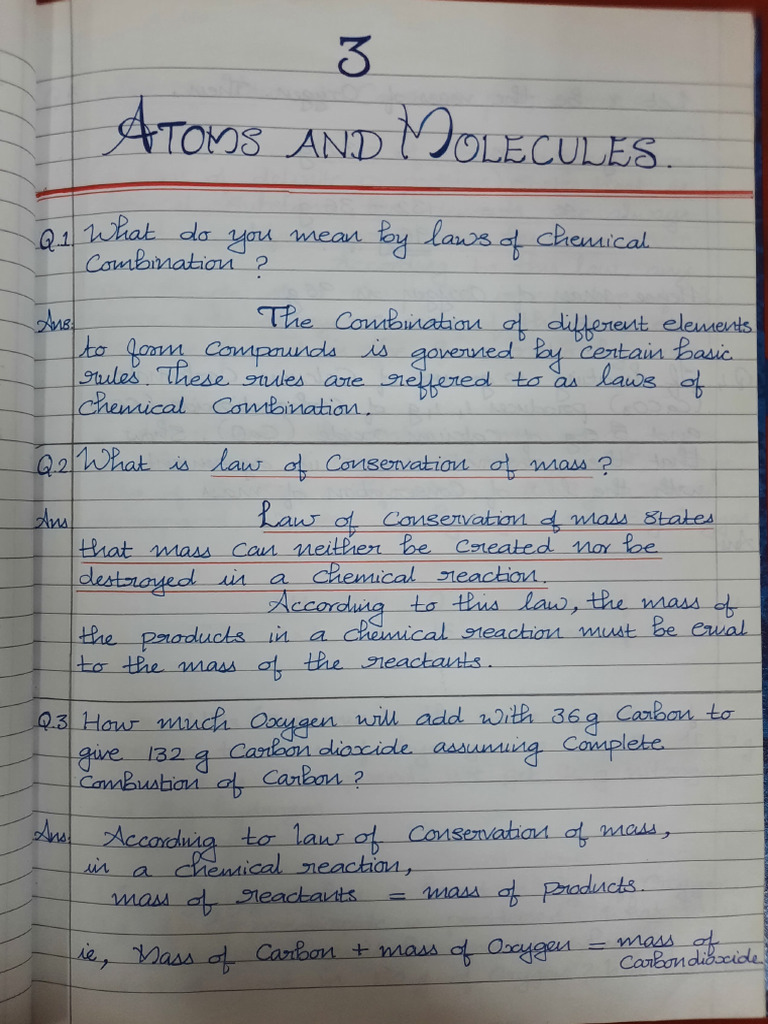 3
ATOMS AND MOLECULES.
Q.1 What do you mean by laws of chemical
Combination ?
Ans: The Combination of different elements
to form Compounds is governed by certain basic
rules. These rules are reffered to as laws of
chemical Combination.
Q.2 What is law of Conservation of mass ?
Ans Law of Conservation of mass states
that mass can neither be created nor be
destroyed in a chemical reaction.
According to this law, the mass of
the products in a chemical reaction must be equal
to the mass of the reactants.
Q.3 How much Oxygen will add with 36g Carbon to
give 132 g Carbon dioxide assuming Complete
Combustion of Carbon ?
Ans: According to law of Conservation of mass,
in a chemical reaction,
mass of reactants = mass of products.
ie, Mass of Carbon + mass of Oxygen = mass of
Carbondioxide